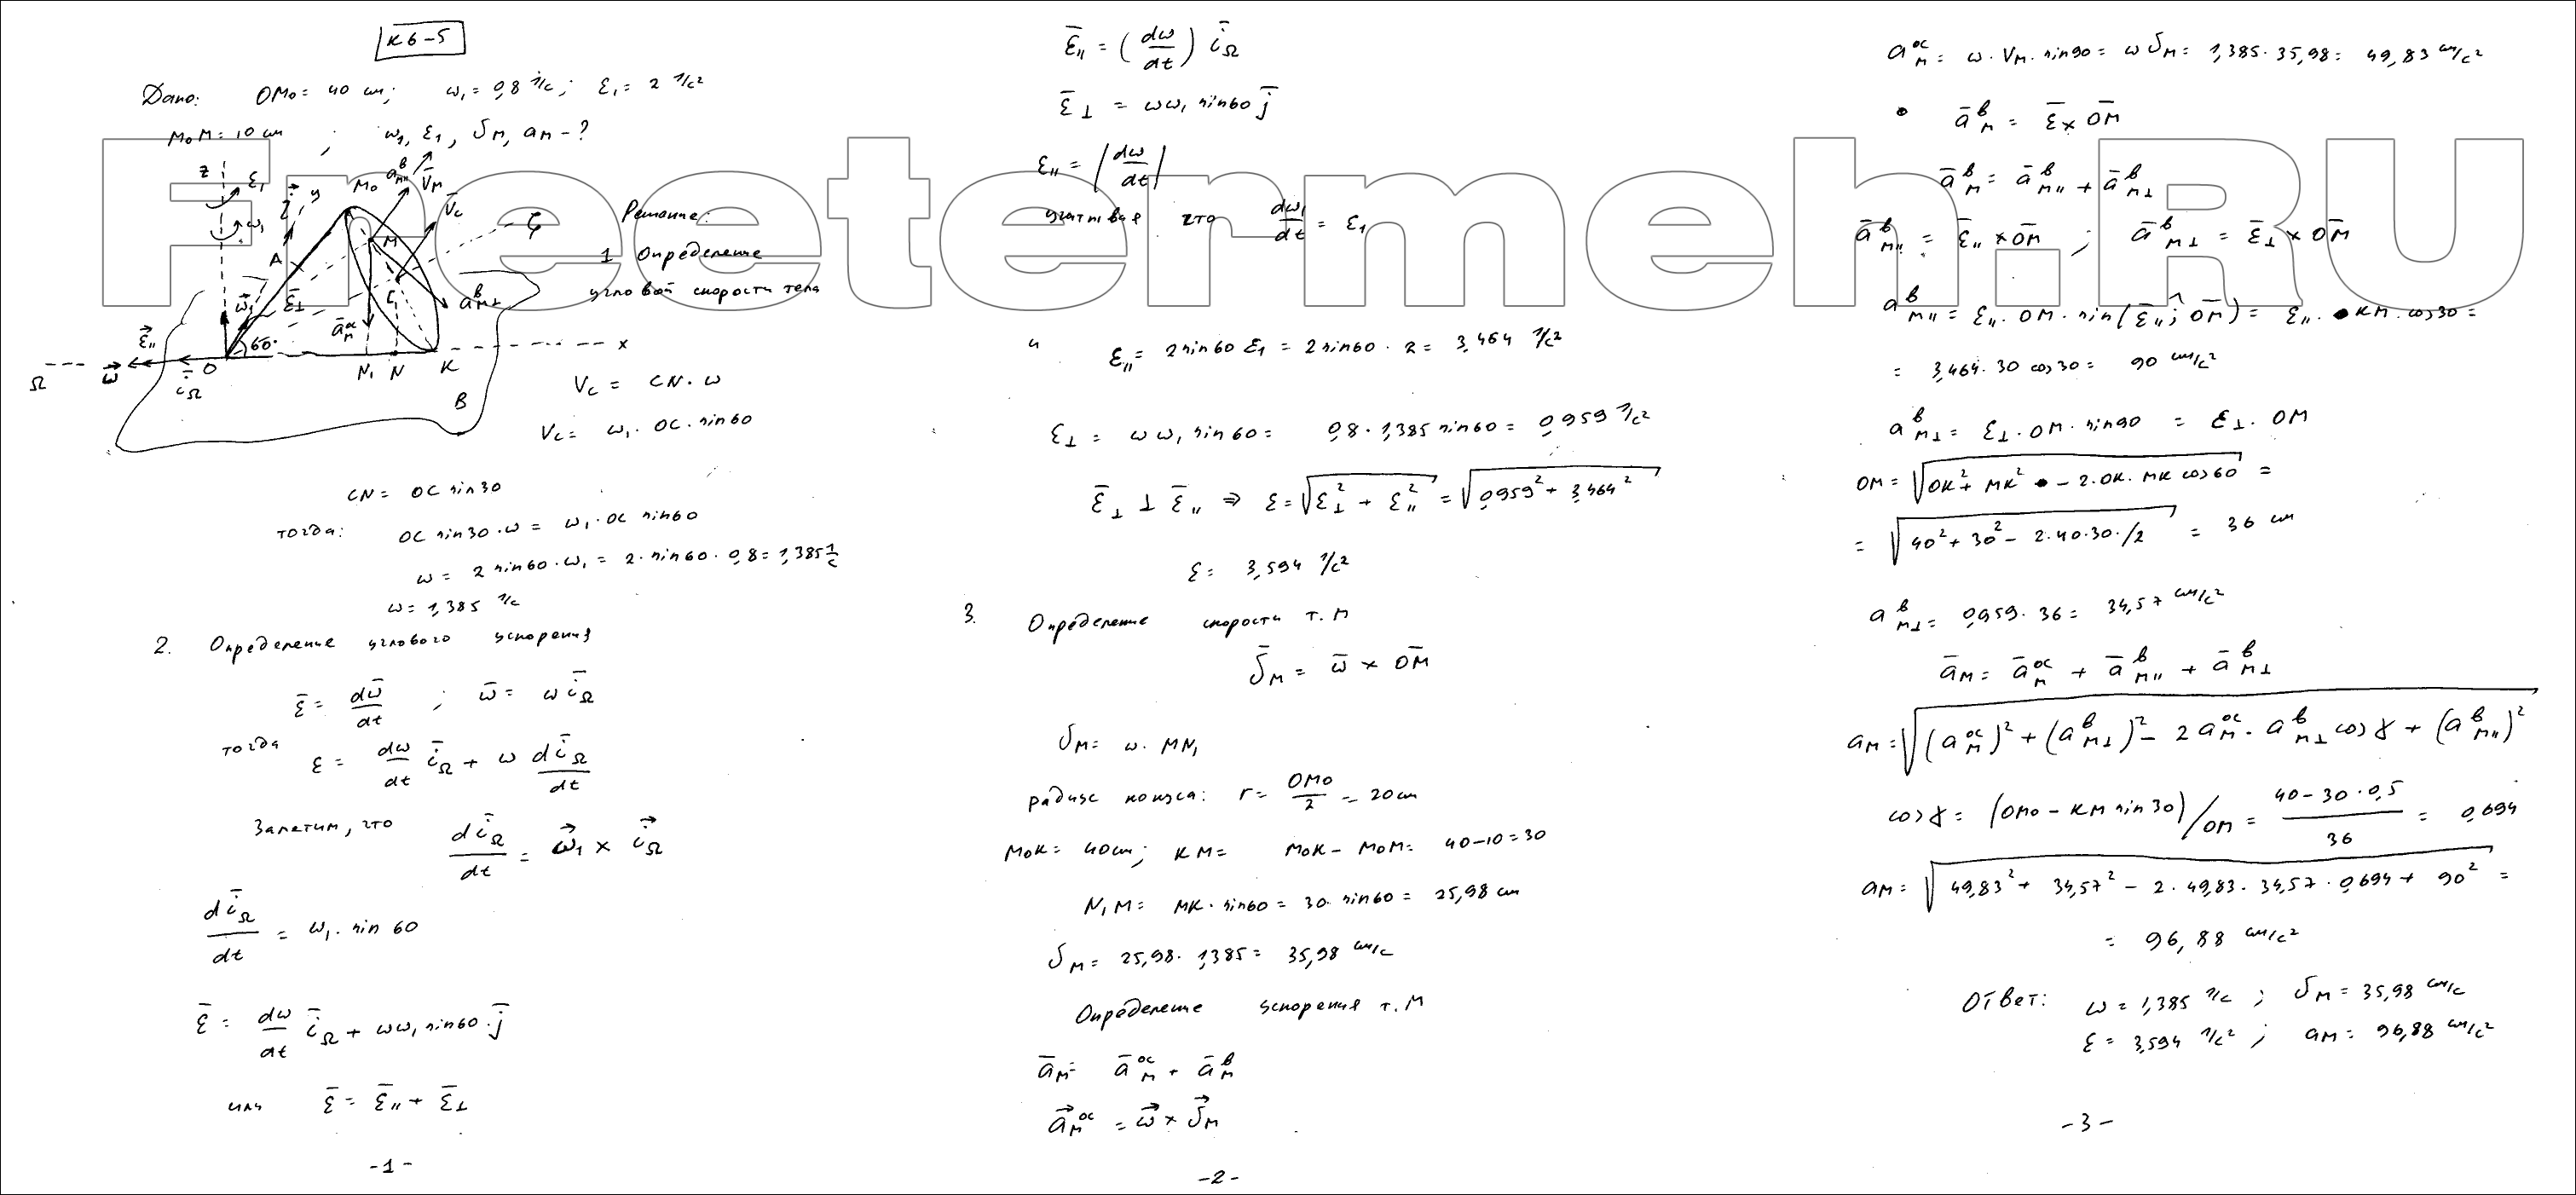 К6-5
Дано: OM₀ = 40 см; ω₁ = 0,8 1/с; ε₁ = 2 1/с²
M₀M = 10 см ; ω₁, ε₁, υм, aм - ?
Freetermeh.RU
z ε₁ ω₁ y M₀ aᵇм׀׀ V̄м V̄c ζ
A M C aᵇм⊥ ω̄₁ ε̄⊥ āᵒᶜм
Ω ω⃗ ε⃗׀׀ īΩ O 60° N₁ N K x B
Решение:
1 Определение
угловой скорости тела
Vc = CN · ω
Vc = ω₁ · OC · sin60
CN = OC sin30
тогда: OC sin30 · ω = ω₁ · OC sin60
ω = 2 sin60 · ω₁ = 2 · sin60 · 0,8 = 1,385 1/с
ω = 1,385 1/с
2. Определение углового ускорения
ε̄ = dω̄/dt ; ω̄ = ω īΩ
тогда ε = dω/dt īΩ + ω dīΩ/dt
Заметим, что dīΩ/dt = ω⃗₁ × i⃗Ω
dīΩ/dt = ω₁ · sin 60
ε̄ = dω/dt īΩ + ωω₁ sin60 · j̄
или ε̄ = ε̄׀׀ + ε̄⊥
-1-
ε̄׀׀ = (dω/dt) īΩ
ε̄⊥ = ωω₁ sin60 j̄
ε׀׀ = |dω/dt|
учитывая что dω₁/dt = ε₁
ε׀׀ = 2sin60 ε₁ = 2sin60 · 2 = 3,464 1/с²
ε⊥ = ωω₁ sin60 = 0,8 · 1,385 sin60 = 0,959 1/с²
ε̄⊥ ⊥ ε̄׀׀ ⇒ ε = √(ε⊥² + ε׀׀²) = √(0,959² + 3,464²)
ε = 3,594 1/с²
3. Определение скорости т. М
ῡм = ω̄ × OM̄
υм = ω · MN₁
радиус конуса: r = OM₀/2 = 20 см
M₀K = 40 см; KM = M₀K - M₀M = 40-10=30
N₁M = MK · sin60 = 30 · sin60 = 25,98 см
υм = 25,98 · 1,385 = 35,98 см/с
Определение ускорения т. М
āм = āᵒᶜм + āᵇм
a⃗ᵒᶜм = ω⃗ × υ⃗м
-2-
aᵒᶜм = ω · Vм · sin90 = ω υм = 1,385 · 35,98 = 49,83 см/с²
āᵇм = ε̄ × OM̄
āᵇм = āᵇм׀׀ + āᵇм⊥
āᵇм׀׀ = ε̄׀׀ × OM̄ ; āᵇм⊥ = ε̄⊥ × OM̄
aᵇм׀׀ = ε׀׀ · OM · sin(ε̄׀׀; OM̄) = ε׀׀ · KM · cos30 =
= 3,464 · 30 cos30 = 90 см/с²
aᵇм⊥ = ε⊥ · OM · sin90 = ε⊥ · OM
OM = √(OK² + MK² - 2·OK·MK cos60) =
= √(40² + 30² - 2·40·30·/2) = 36 см
aᵇм⊥ = 0,959 · 36 = 34,57 см/с²
āм = āᵒᶜм + āᵇм׀׀ + āᵇм⊥
aм = √((aᵒᶜм)² + (aᵇм⊥)² - 2aᵒᶜм · aᵇм⊥ cosγ + (aᵇм׀׀)²)
cosγ = (OM₀ - KM sin30)/OM = (40 - 30 · 0,5)/36 = 0,694
aм = √(49,83² + 34,57² - 2 · 49,83 · 34,57 · 0,694 + 90²) =
= 96,88 см/с²
Ответ: ω = 1,385 1/с ; υм = 35,98 см/с
ε = 3,594 1/с² ; aм = 96,88 см/с²
-3-